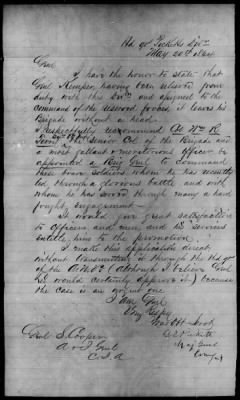 Hd Qrs Picketts Divn
May 20th 1864
Genl
I have the honor to state that
Genl Kemper, having been relieved from
duty with this Divn and assigned to the
command of the reserved forces, it leaves his
Brigade without a head.
I respectfully recommend Col Wm R.
Terry the senior Col of the Brigade and
a most gallant & meritorious officer be
appointed a Brig Genl to command
these brave soldiers whom he has recently
led through a glorious battle and with
whom he has served through many a hard
fought engagement —
It would give great satisfaction
to officers and men, and his services
entitle him to the promotion.
I make this application direct
without transmitting it through the Hd Qrs
of the (although I believe Genl
would certainly approve it) because
the case is an urgent one
I am Genl
Very Resply
Your Obt
Maj Genl
Comdg
Genl S. Cooper
A & I Genl
C.S.A